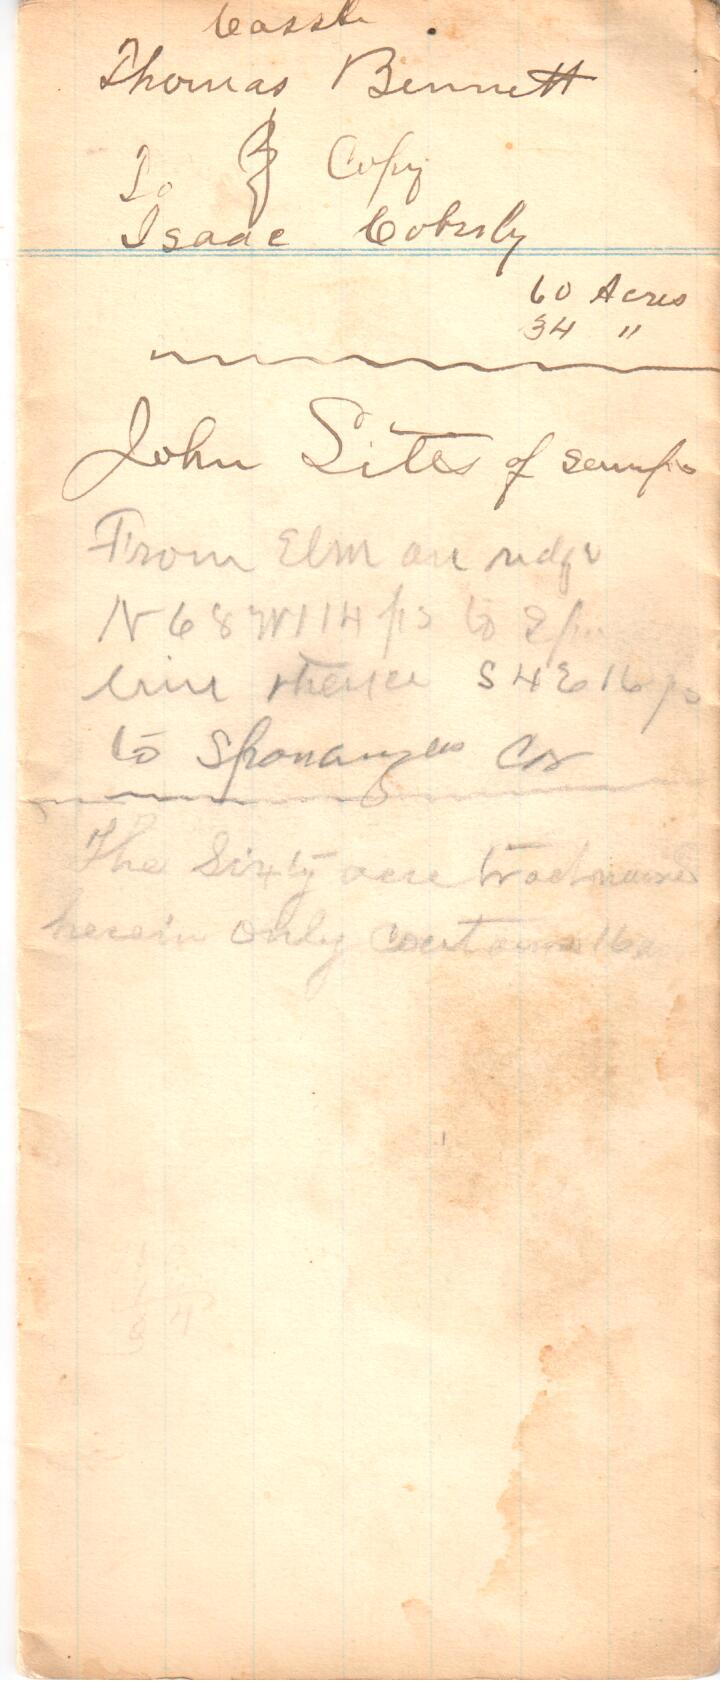 Thomas Bennett
To } Copy
Isaac Coberly
60 Acres
34 "
John Sites of
From Elm on ridge
N 68 W 114 ps to
line thence S 4 E 16 ps
to Sponaugles Cor
The Sixty acre tract named
herein only contains 16